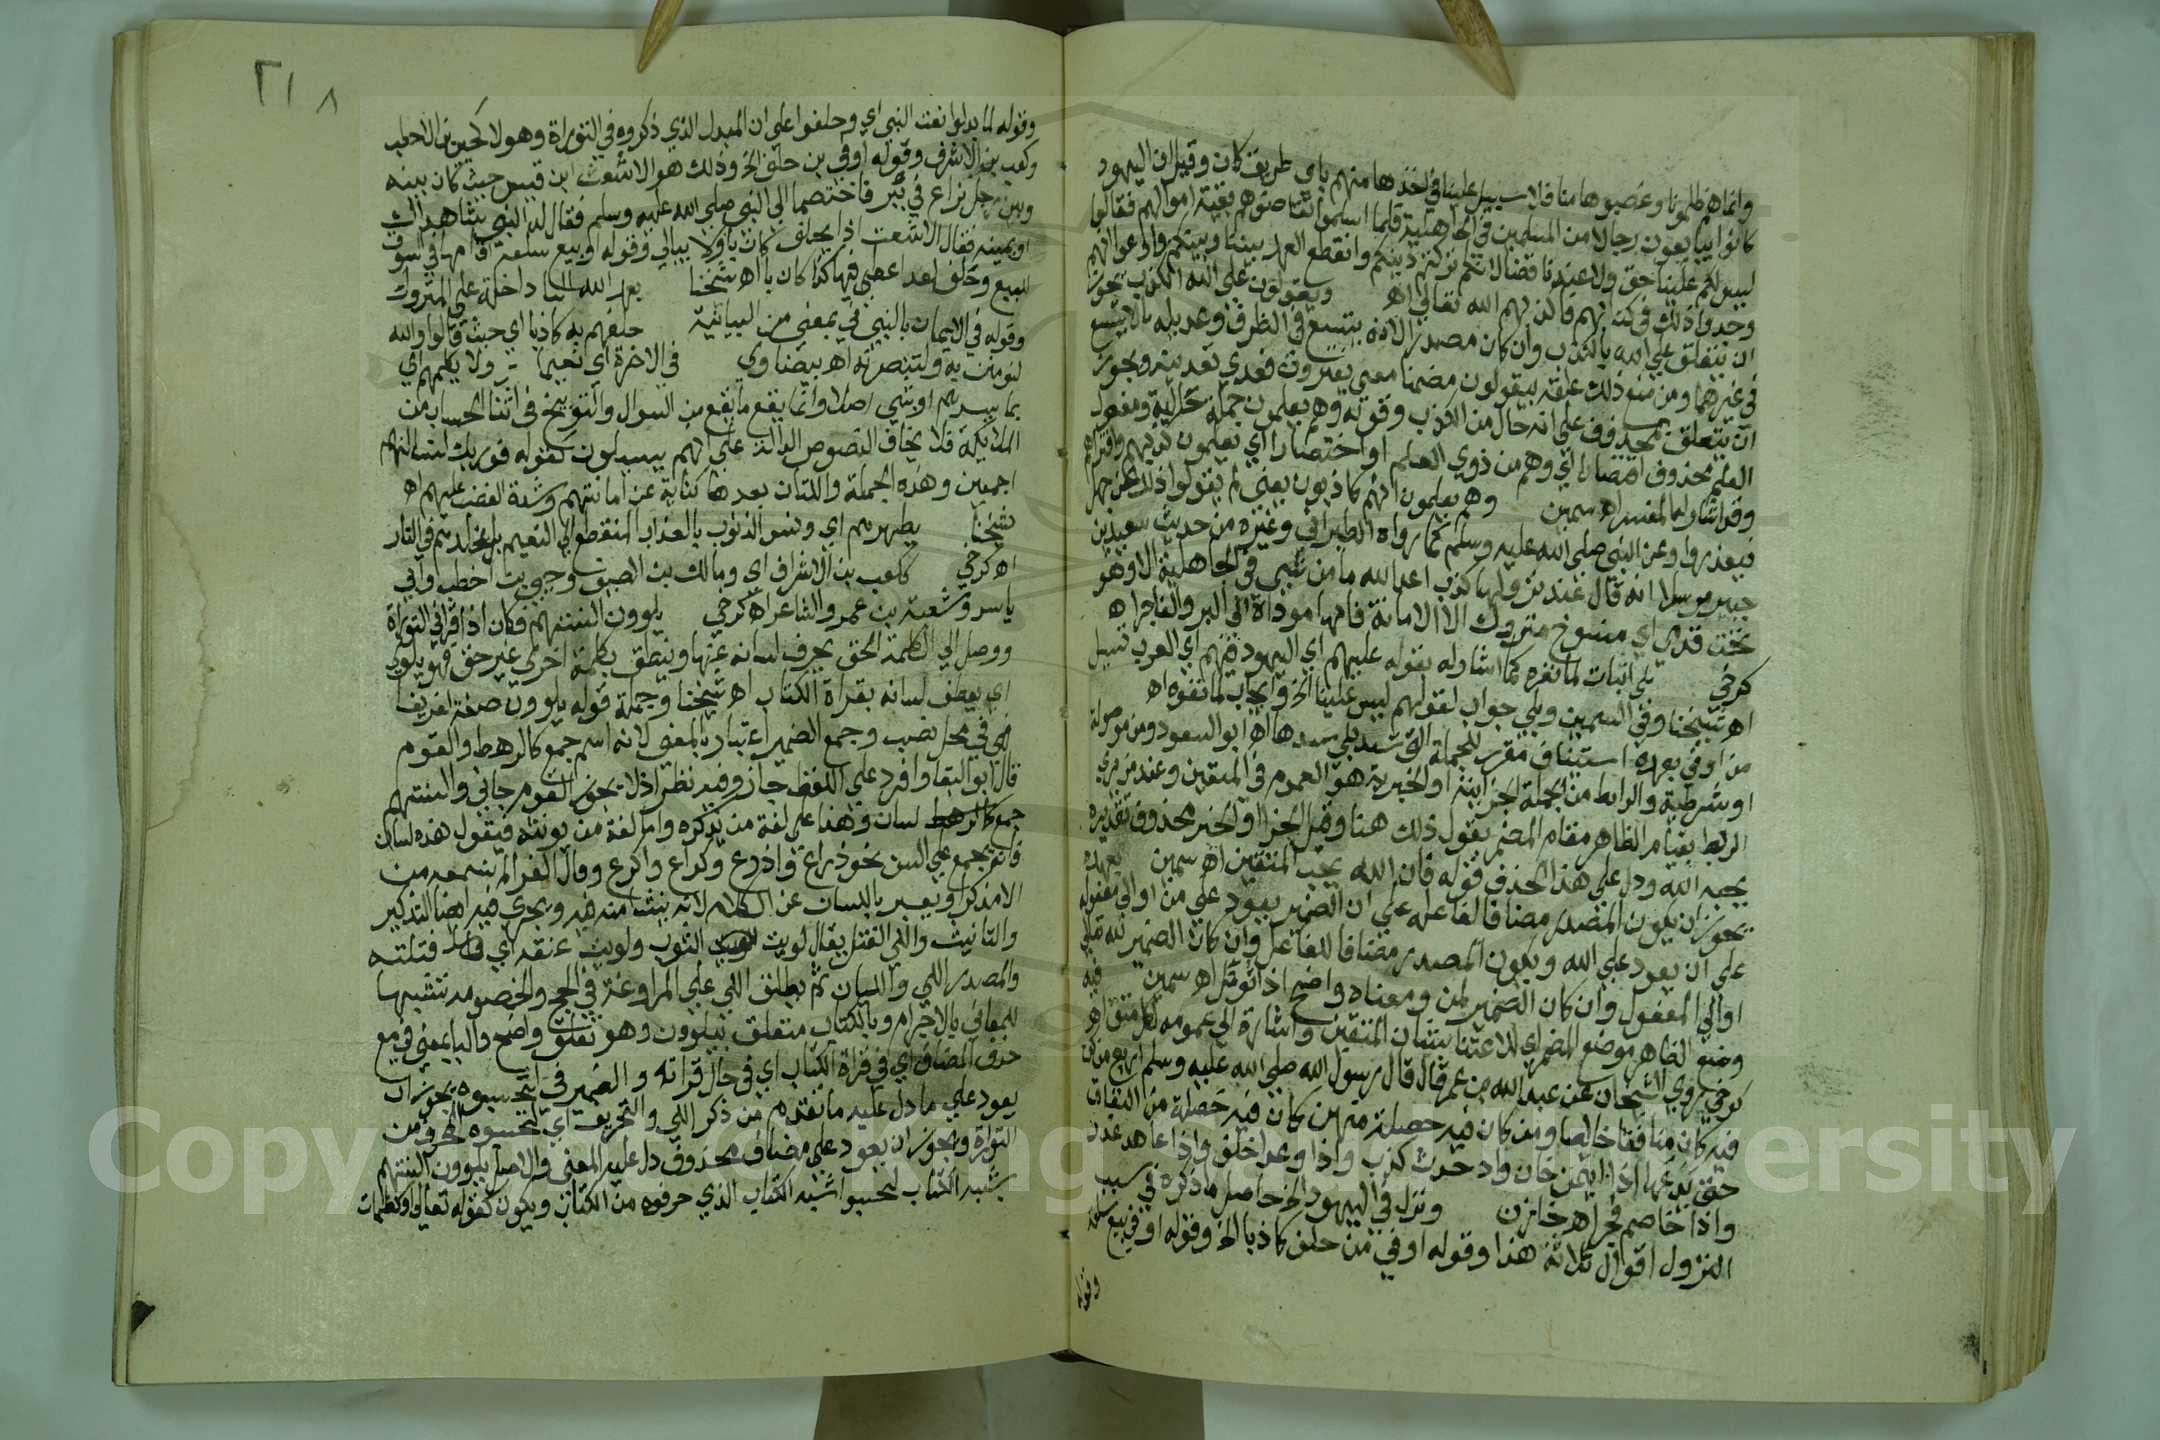 وانما هم ظلمونا وغصبوها منا فلا سبيل علينا في اخذها منهم باي طريق كان وقيل ان اليهود
كانوا يبايعون رجالا من المسلمين في الجاهلية فلما اسلموا تقاضوهم بقية اموالهم فقالوا
ليس لكم علينا حق ولا عندنا قضا لانكم تركتم دينكم وانقطع العهد بيننا وبينكم وادعوا انهم
وجدوا ذلك في كتابهم فاكذبهم الله تعالى اهـ ويقولون على الله الكذب يجوز
ان يتعلق على الله بالكذب وان كان مصدرا لانه يتسع في الظرف وعديله ما لا يتسع
في غيرهما ومن منع ذلك علقه بيقولون مضمنا معنى يفترون فعدي تعديته ويجوز
ان يتعلق بمحذوف على انه حال من الكذب وقوله وهم يعلمون جملة حالية ومفعول
العلم محذوف اقتصارا اي وهم من ذوي العلم او اختصارا اي يعلمون كذبهم وافتراهم
وقد اشار له المفسر اهـ سمين وهم يعلمون انهم كاذبون يعني لم يقولوا ذلك عن جهل
فيعذروا وعن النبي صلى الله عليه وسلم كما رواه الطبراني وغيره من حديث سعيد بن
جبير مرسلا انه قال عند نزولها كذب اعدا الله ما من شيء في الجاهلية الا وهو
تحت قدمي اي منسوخ متروك الا الامانة فانها موداة الى البر والفاجر اهـ
كرخي بلى اثبات لما نفوه كما اشار له بقوله عليهم اي اليهود فيهم اي العرب سبيل
اهـ شيخنا وفي السمين وبلى جواب لقولهم ليس علينا الخ وايجاب لما نفوه اهـ
من اوفى بعهده استئناف مقرر للجملة التي سد بلى مسدها اهـ ابو السعود ومن موصولة
او شرطية والرابط من الجملة الجزائية او الخبرية هو العموم في المتقين وعند من يرى
الربط بقيام الظاهر مقام المضمر يقول ذلك هنا وقيل الجزا او الخبر محذوف تقديره
يحبه الله ودل على هذا الحذف قوله فان الله يحب المتقين اهـ سمين بعهده
يجوز ان يكون المصدر مضافا لفاعله على ان الضمير يعود على من او الى مفعوله
على ان يعود على الله ويكون المصدر مضافا للفاعل وان كان الضمير لله تعالى
او الى المفعول وان كان الضمير لمن ومعناه واضح اذا تؤمل اهـ سمين فيه
وضع الظاهر موضع المضمر اي للاعتنا بشان المتقين واشارة الى عمومه لكل متق اهـ
كرخي روى الشيخان عن عبد الله بن عمر قال قال رسول الله صلى الله عليه وسلم اربع من كن
فيه كان منافقا خالصا ومن كان فيه خصلة منهن كان فيه خصلة من النفاق
حتى يدعها اذا اوتمن خان واذ حدث كذب واذا وعد اخلف واذا عاهد غدر
واذا خاصم فجر اهـ خازن ونزل في اليهود الخ حاصل ما ذكره في سبب
النزول اقوال ثلاثة هذا وقوله او في من حلف كاذبا الخ وقوله او في بيع سلعة
وقوله
٢١٨
وقوله لما بدلوا نعت النبي اي وحلفوا على ان المبدل الذي ذكروه في التوراة وهولا كحيي بن الاخطب
وكعب بن الاشرف وقوله او في من حلف الخ وذلك هو الاشعث ابن قيس حيث كان بينه
وبين رجل نزاع في بئر فاختصما الى النبي صلى الله عليه وسلم فقال له النبي شاهداك
او يمينه فقال الاشعث اذا يحلف كاذبا ولا يبالي وقوله او بيع سلعة اقامها في السوق
للبيع وحلف لقد اعطي فيها كذا كاذبا اهـ شيخنا بعهد الله البا داخلة على المتروك
وقوله في الايمان بالنبي في بمعنى من البيانية حلفهم به كاذبا اي حيث قالوا والله
لنومنن به ولننصرنه اهـ بيضاوي في الاخرة اي نعيمها ولا يكلمهم اي
بما يسرهم او بشي اصلا وانما يقع ما يقع من السوال والتوبيخ في اثنا الحساب من
الملائكة فلا يخاف النصوص الدالة على انهم يسالون كقوله فوربك لنسالنهم
اجمعين وهذه الجملة واللتان بعدها كناية عن اهانتهم وشدة الغضب عليهم اهـ
شيخنا يطهرهم اي ودنس الذنوب بالعذاب المنقطع الى النعيم بل يخلدهم في النار
اهـ كرخي ككعب بن الاشراف اي ومالك بن الصيف وحيي بن اخطب وابي
ياسر وشعبة بن عمرو الشاعر اهـ كرخي يلوون السنتهم فكان اذا قرا في التوراة
ووصل الى الكلمة الحق يحرف لسانه عنها وينطق بكلمة اخرى غير حق فهو يلوي
اي يعطف لسانه بقراة الكتاب اهـ شيخنا وجملة قوله يلوون صفة لفريقا
فهي في محل نصب وجمع الضمير اعتبارا بالمعنى لانه اسم جمع كالرهط والقوم
قال ابو البقا ولو افرد على اللفظ جاز وفيه نظر اذ لا يجوز القوم جاني والسنتهم
جمع كالرهط لسان وهذا على لغة من يذكره واما لغة من يونثه فيقول هذه لسان
فانه يجمع على السن نحو ذراع واذرع وكراع واكرع وقال الفرا لم نسمعه من
الا مذكرا ويعبر باللسان عن الكلام لانه ينشا منه فيه ويجري فيه ايضا التذكير
والتانيث واللي الفتل يقال لويت الثوب ولويت عنقه اي فتلته
والمصدر اللي واللسان ثم يطلق اللي على المراوغة في الحجج والخصومة تشبيها
للمعاني بالاجرام وبالكتاب متعلق بيلوون وهو تعلق واضح والبا بمعنى في مع
حذف المضاف اي في قراة الكتاب اي في حال قراته والضمير في لتحسبوه يجوز ان
يعود على ما دل عليه ما تقدم من ذكر اللي والتحريف اي لتحسبوه المحرف من
التوراة ويجوز ان يعود على مضاف محذوف دل عليه المعنى والاصل يلوون السنتهم
بشبه الكتاب لتحسبوا شبه الكتاب الذي حرفوه من الكتاب ويكون كقوله تعالى او كظلمات